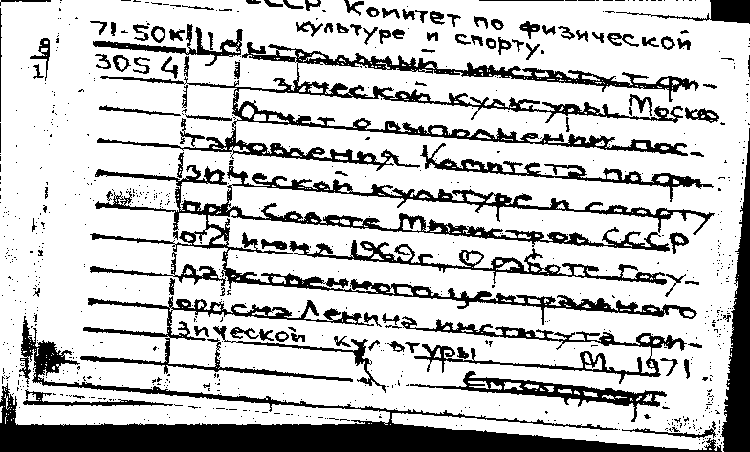 СССР. Комитет по физической
культуре и спорту.
71-50к Центральный институт фи-
3054 зической культуры. Москва.
Отчет о выполнении пос-
тановления Комитета по фи-
зической культуре и спорту
при Совете Министров СССР
от 2 июня 1969г. „О работе Госу-
дарственного центрального
ордена Ленина института фи-
зической культуры" М., 1971.